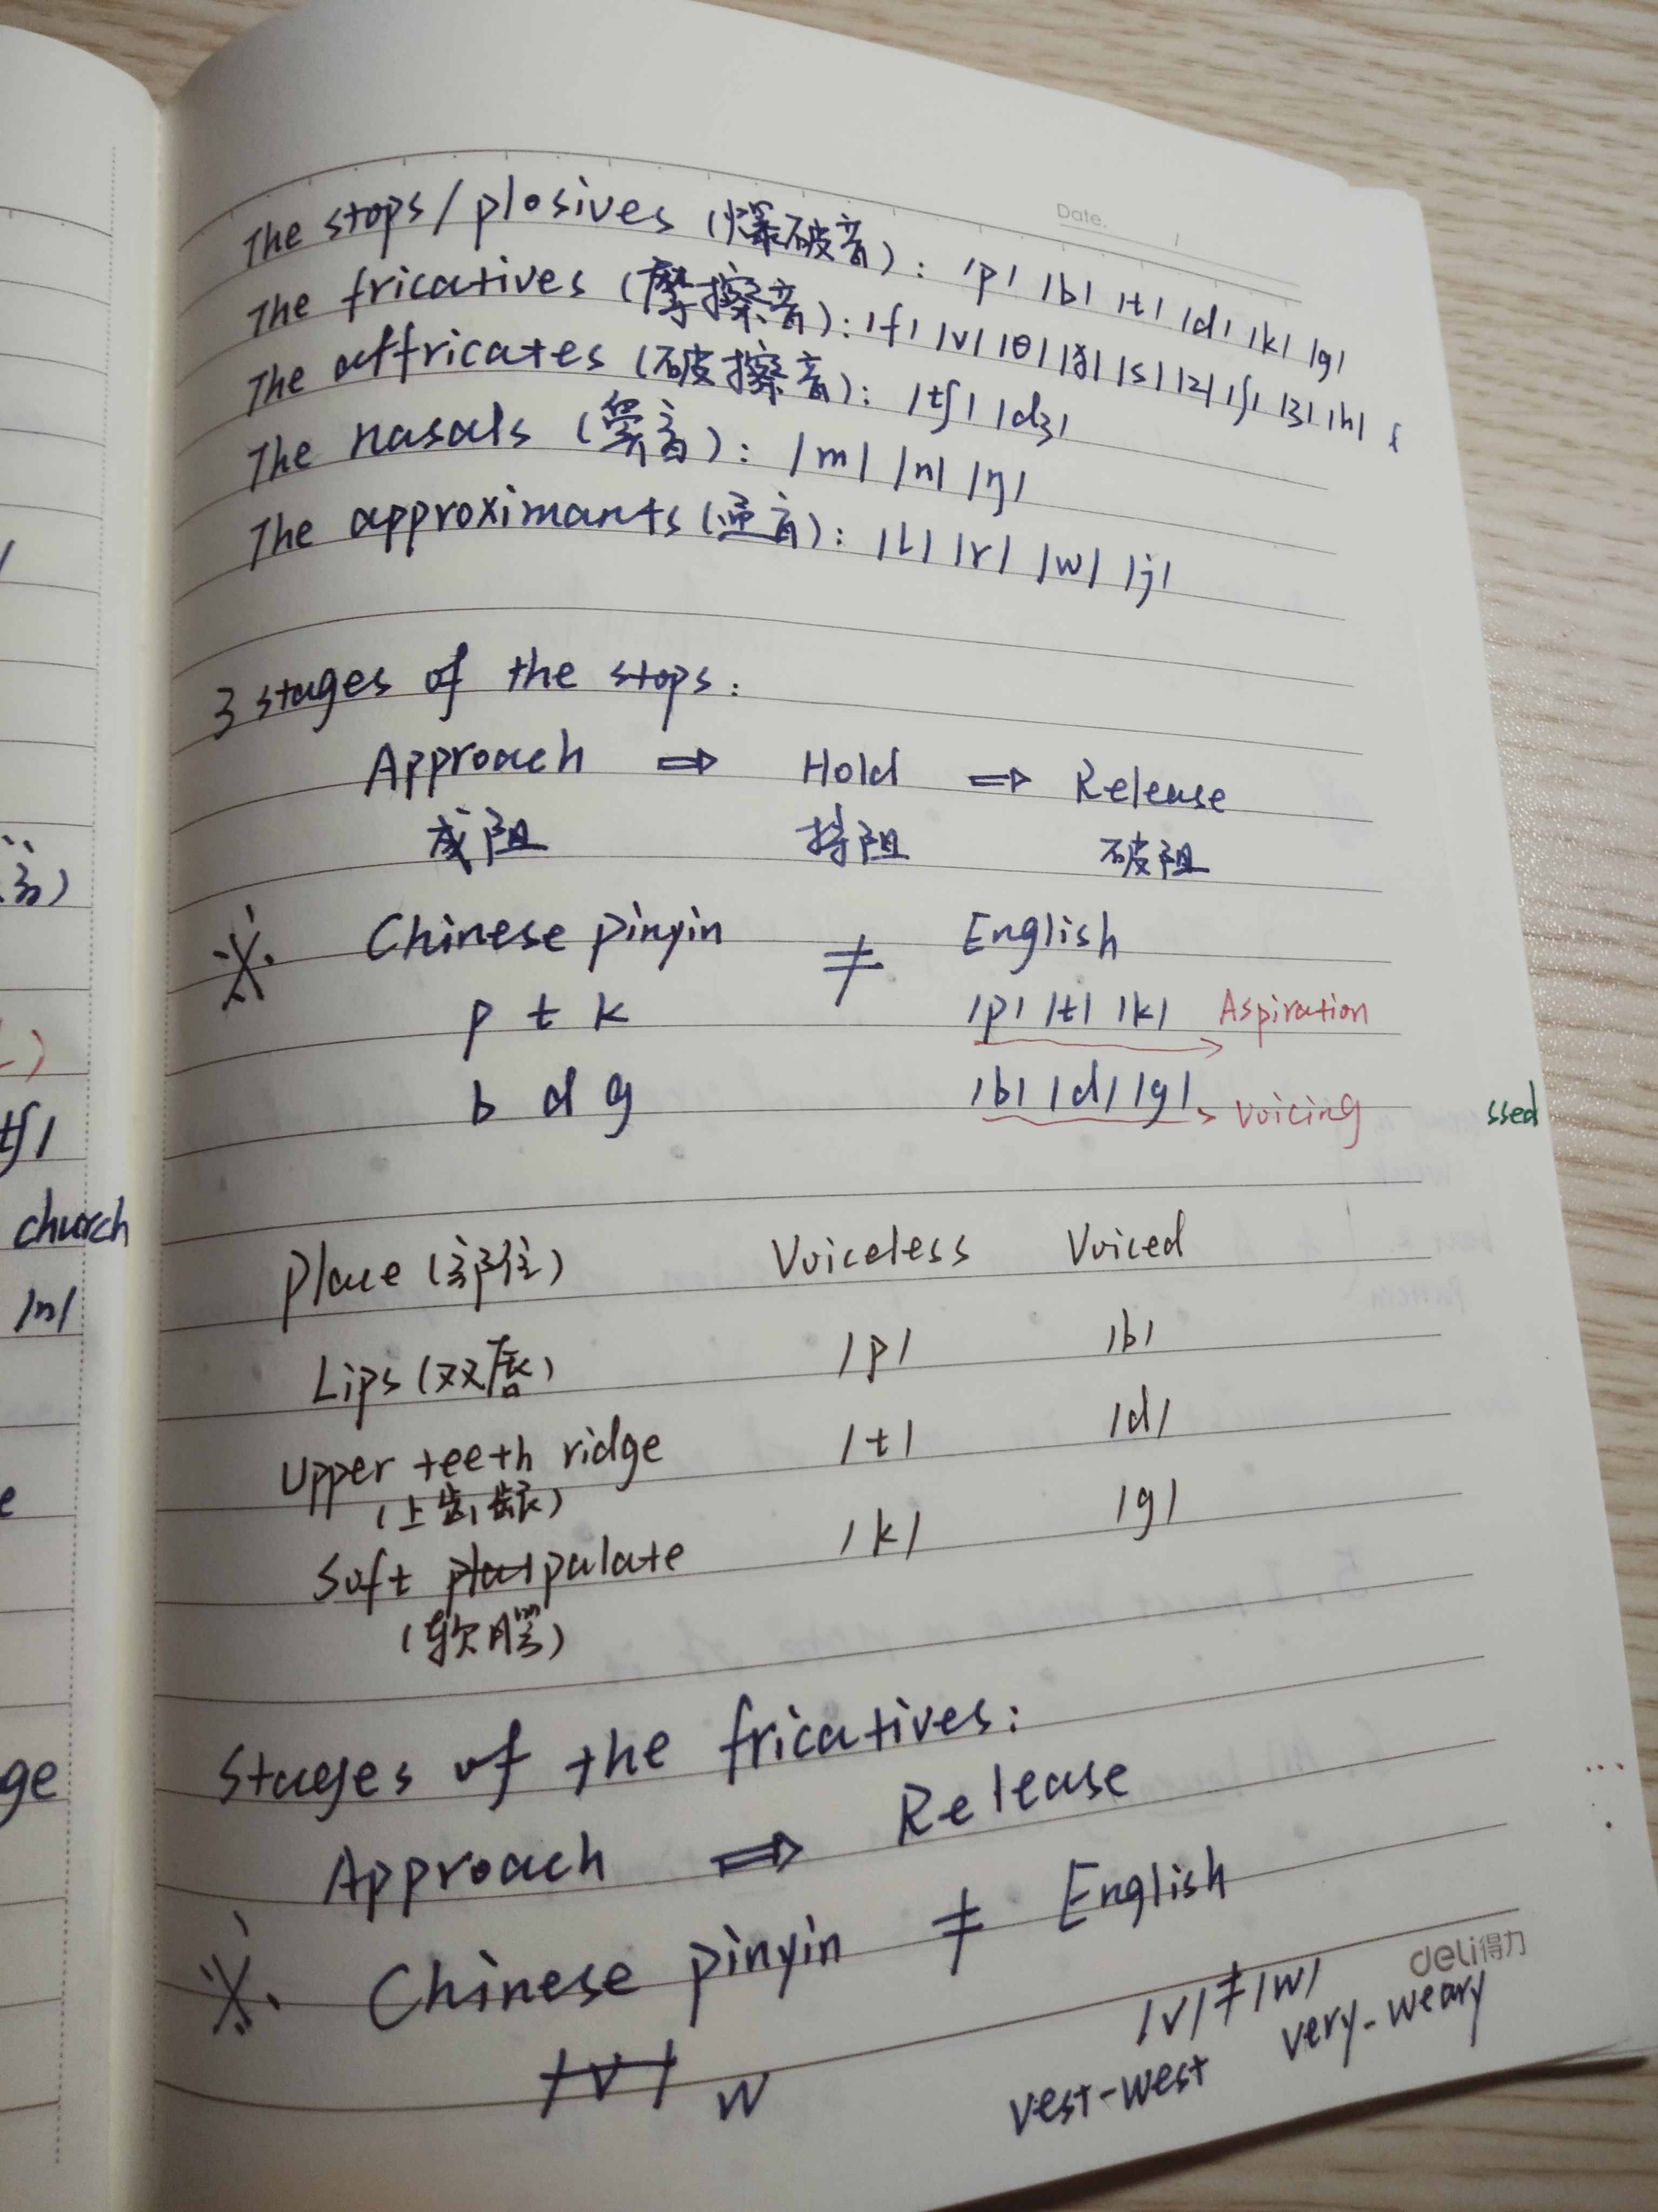 Date.
The stops/plosives (爆破音): /p/ /b/ /t/ /d/ /k/ /g/
The fricatives (摩擦音): /f/ /v/ /θ/ /ð/ /s/ /z/ /ʃ/ /ʒ/ /h/
The affricates (破擦音): /tʃ/ /dʒ/
The nasals (鼻音): /m/ /n/ /ŋ/
The approximants (通音): /l/ /r/ /w/ /j/
3 stages of the stops:
Approach ⇒ Hold ⇒ Release
成阻 持阻 破阻
※. Chinese pinyin ≠ English
p t k /p/ /t/ /k/ Aspiration
b d g /b/ /d/ /g/ → voicing
ssed
tʃ/
church
/n/
ge
Place (部位) Voiceless Voiced
Lips (双唇) /p/ /b/
Upper teeth ridge /t/ /d/
(上齿龈)
Soft palate /k/ /g/
(软腭)
Stages of the fricatives:
Approach ⇒ Release
※. Chinese pinyin ≠ English
deli得力
/v/ w
/v/ ≠ /w/
vest-west very-weary